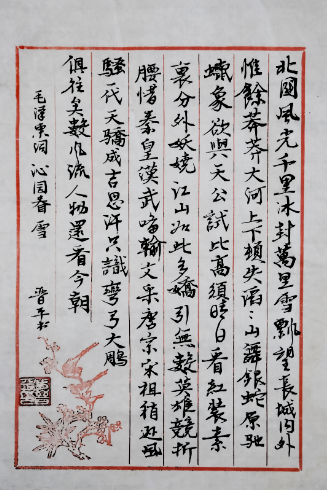 北國風光千里冰封萬里雪飄望長城內外
惟餘莽莽大河上下頓失滔〻山舞銀蛇原馳
蠟象欲與天公試比高須晴日看紅裝素
裹分外妖嬈江山如此多嬌引無數英雄競折
腰惜秦皇漢武略輸文采唐宗宋祖稍遜風
騷一代天驕成吉思汗只識彎弓大雕
俱往矣數風流人物還看今朝
毛澤東詞 沁園春雪